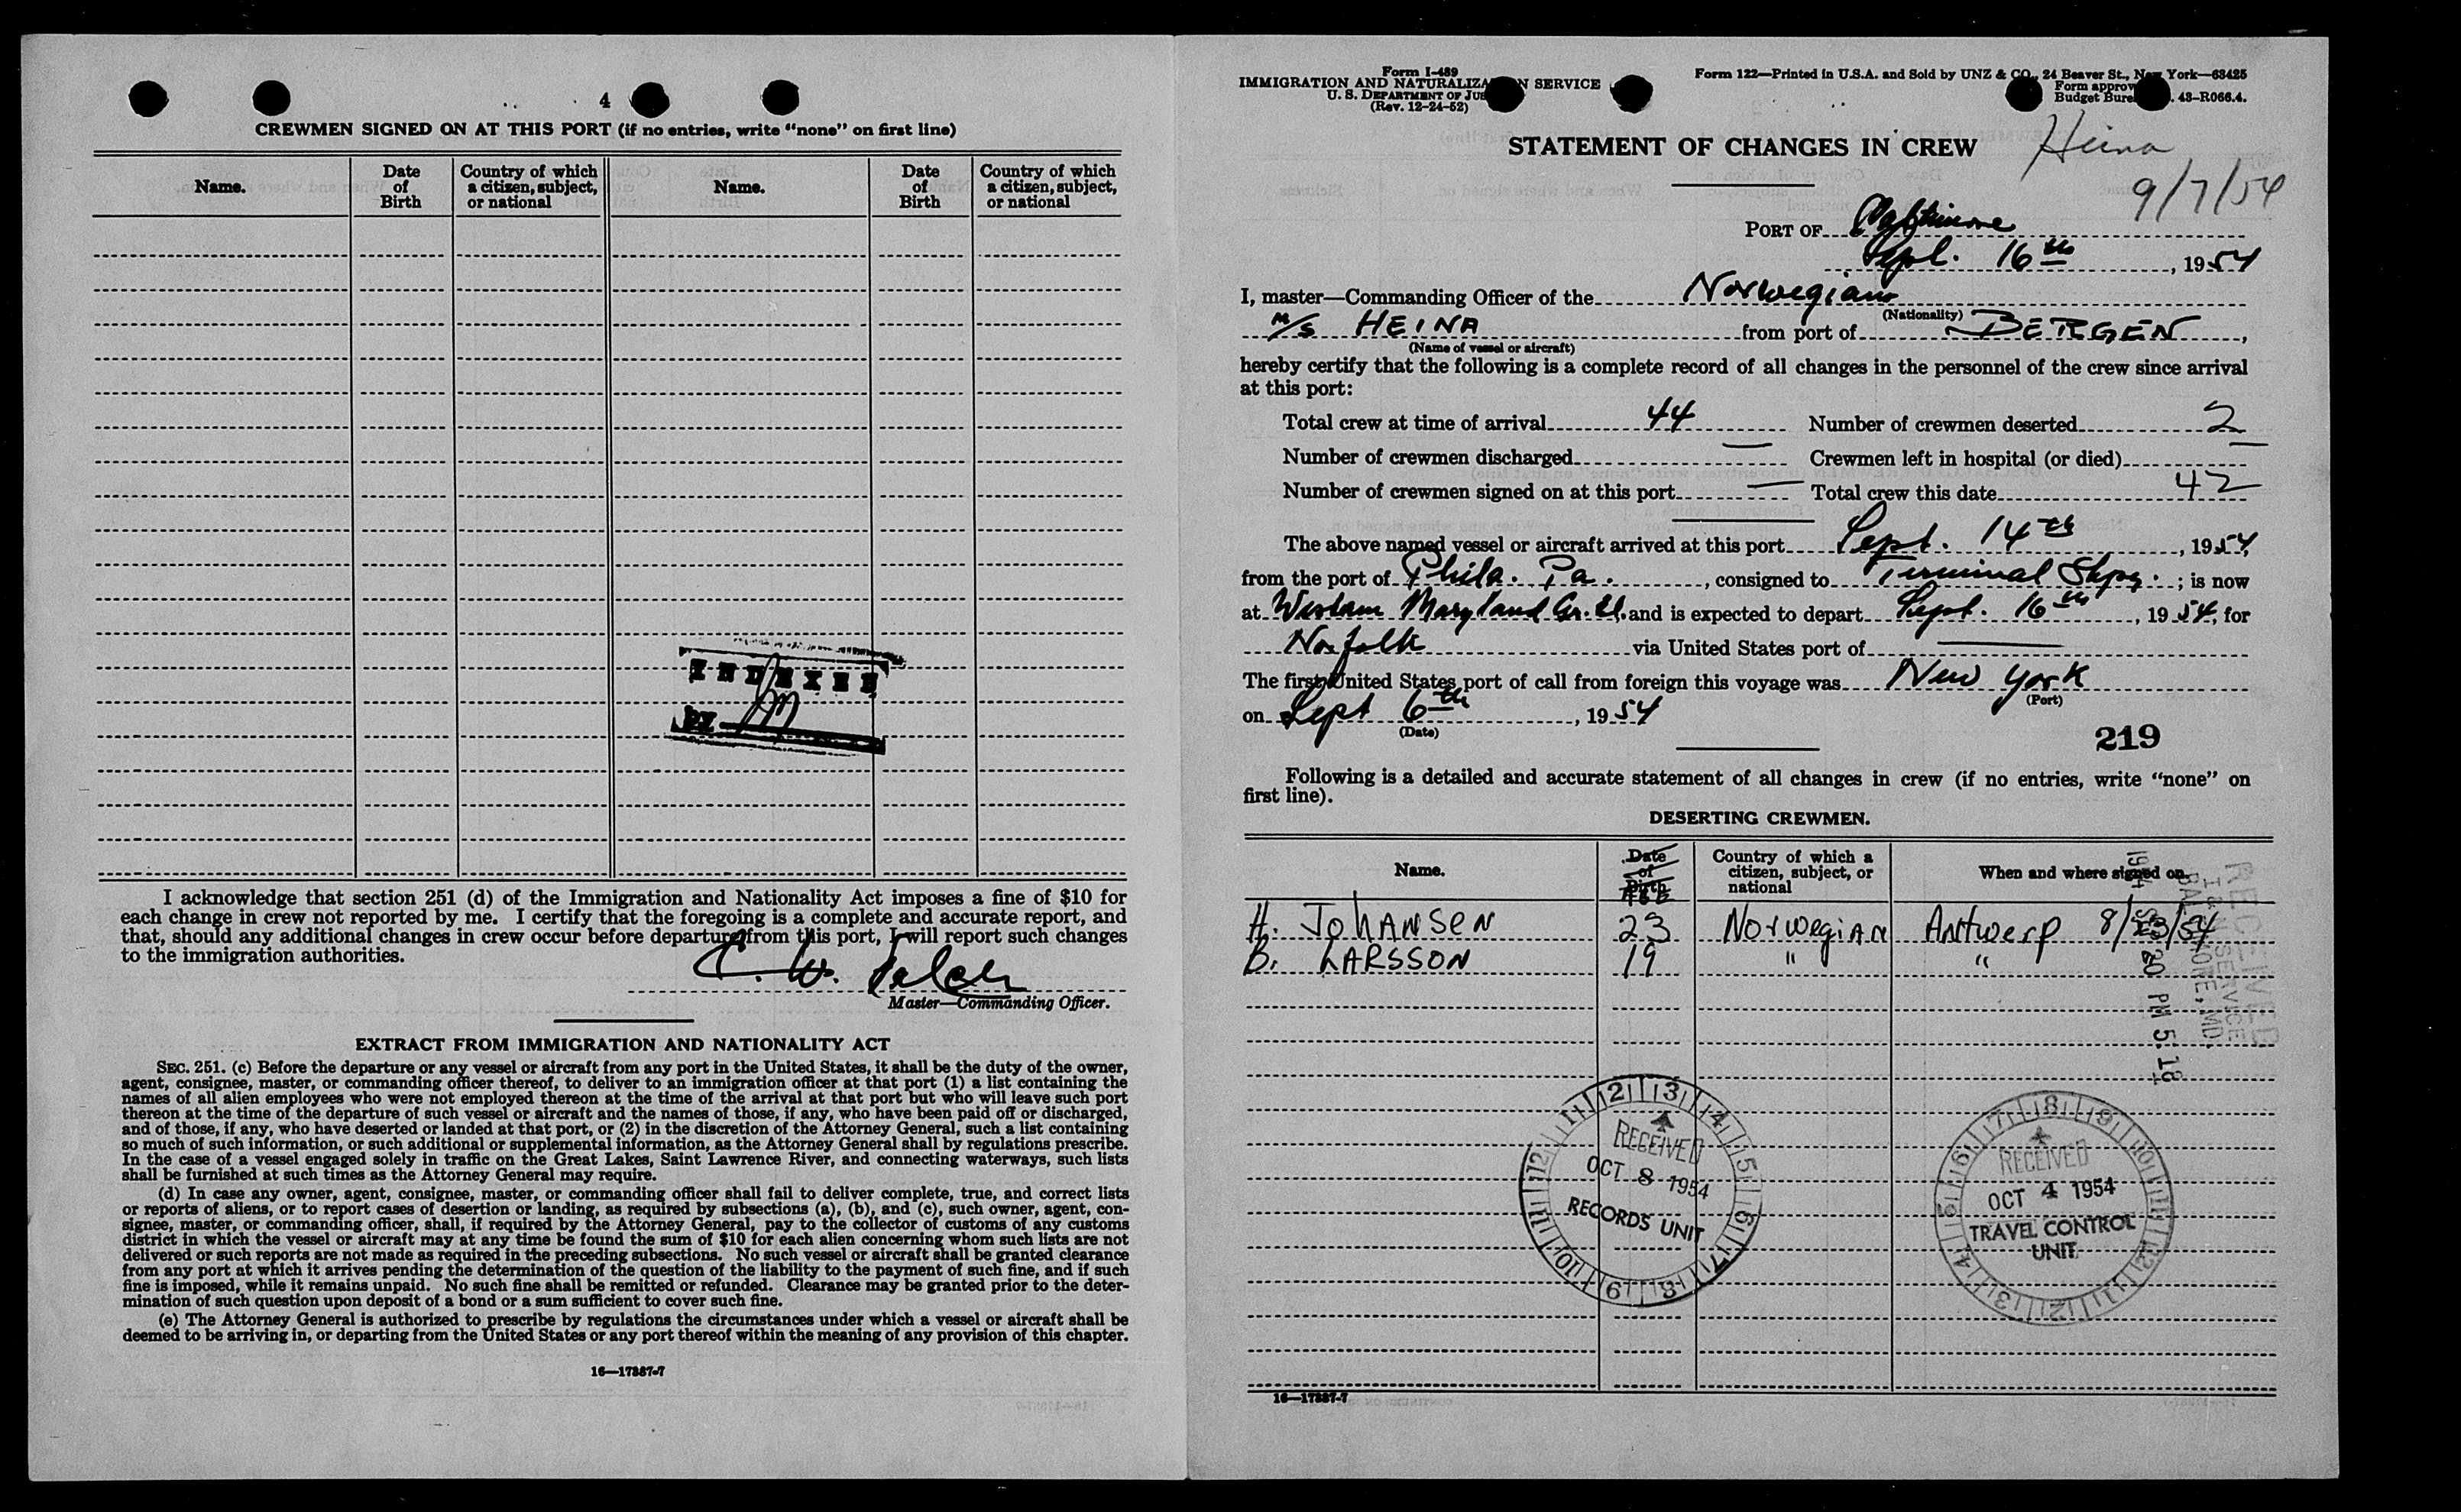 4
CREWMEN SIGNED ON AT THIS PORT (if no entries, write “none” on first line)
Name. Date of Birth Country of which a citizen, subject, or national Name. Date of Birth Country of which a citizen, subject, or national
INDEXED
BY
I acknowledge that section 251 (d) of the Immigration and Nationality Act imposes a fine of $10 for
each change in crew not reported by me. I certify that the foregoing is a complete and accurate report, and
that, should any additional changes in crew occur before departure from this port, I will report such changes
to the immigration authorities.
C. W.
Master—Commanding Officer.
EXTRACT FROM IMMIGRATION AND NATIONALITY ACT
SEC. 251. (c) Before the departure or any vessel or aircraft from any port in the United States, it shall be the duty of the owner,
agent, consignee, master, or commanding officer thereof, to deliver to an immigration officer at that port (1) a list containing the
names of all alien employees who were not employed thereon at the time of the arrival at that port but who will leave such port
thereon at the time of the departure of such vessel or aircraft and the names of those, if any, who have been paid off or discharged,
and of those, if any, who have deserted or landed at that port, or (2) in the discretion of the Attorney General, such a list containing
so much of such information, or such additional or supplemental information, as the Attorney General shall by regulations prescribe.
In the case of a vessel engaged solely in traffic on the Great Lakes, Saint Lawrence River, and connecting waterways, such lists
shall be furnished at such times as the Attorney General may require.
(d) In case any owner, agent, consignee, master, or commanding officer shall fail to deliver complete, true, and correct lists
or reports of aliens, or to report cases of desertion or landing, as required by subsections (a), (b), and (c), such owner, agent, con-
signee, master, or commanding officer, shall, if required by the Attorney General, pay to the collector of customs of any customs
district in which the vessel or aircraft may at any time be found the sum of $10 for each alien concerning whom such lists are not
delivered or such reports are not made as required in the preceding subsections. No such vessel or aircraft shall be granted clearance
from any port at which it arrives pending the determination of the question of the liability to the payment of such fine, and if such
fine is imposed, while it remains unpaid. No such fine shall be remitted or refunded. Clearance may be granted prior to the deter-
mination of such question upon deposit of a bond or a sum sufficient to cover such fine.
(e) The Attorney General is authorized to prescribe by regulations the circumstances under which a vessel or aircraft shall be
deemed to be arriving in, or departing from the United States or any port thereof within the meaning of any provision of this chapter.
16—17887-7
Form I-489
IMMIGRATION AND NATURALIZATION SERVICE
U. S. DEPARTMENT OF JUS
(Rev. 12-24-52)
Form 122—Printed in U.S.A. and Sold by UNZ & CO., 24 Beaver St., New York—68425
Form approv
Budget Bure . 43-R066.4.
STATEMENT OF CHANGES IN CREW
Heina
9/7/54
PORT OF Baltimore
Sept. 16th, 1954
I, master—Commanding Officer of the Norwegian
(Nationality)
M/S HEINA from port of BERGEN,
(Name of vessel or aircraft)
hereby certify that the following is a complete record of all changes in the personnel of the crew since arrival
at this port:
Total crew at time of arrival 44 Number of crewmen deserted 2
Number of crewmen discharged — Crewmen left in hospital (or died) —
Number of crewmen signed on at this port — Total crew this date 42
The above named vessel or aircraft arrived at this port Sept. 14th, 1954,
from the port of Phila. Pa., consigned to Terminal Shpg.; is now
at Western Maryland Gr. El. and is expected to depart Sept. 16th, 1954, for
Norfolk via United States port of —
The first United States port of call from foreign this voyage was New York
(Port)
on Sept 6th, 1954
(Date)
219
Following is a detailed and accurate statement of all changes in crew (if no entries, write “none” on
first line).
DESERTING CREWMEN.
Name. Date of Birth AGE Country of which a citizen, subject, or national When and where signed on
H. JOHANSEN 23 NorwegiAN Antwerp 8/23/54
B. LARSSON 19 " "
RECEIVED
I & N SERVICE
BALTIMORE, MD.
1954 SEP 20 PM 5:16
RECEIVED
OCT 8 1954
RECORDS UNIT
RECEIVED
OCT 4 1954
TRAVEL CONTROL
UNIT
16—17887-7